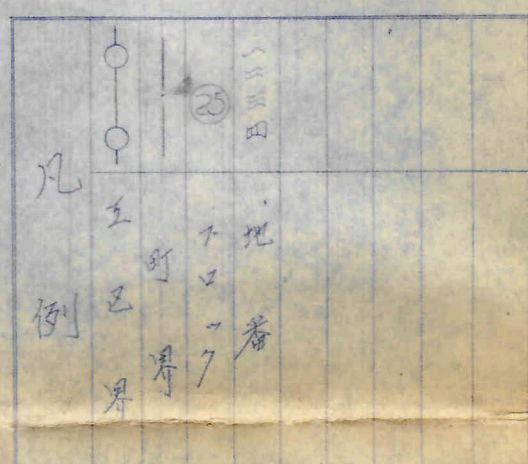 凡例
工区界
町界
25
ブロック
一二三四
地番